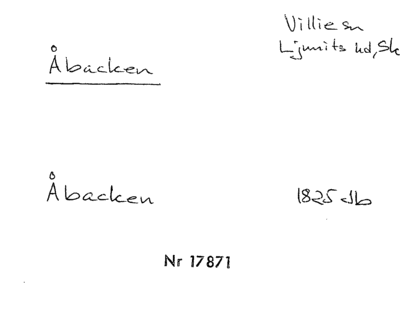 Åbacken
Villie sn
Ljunits hd, Sk
Åbacken
1825 db
Nr 17871